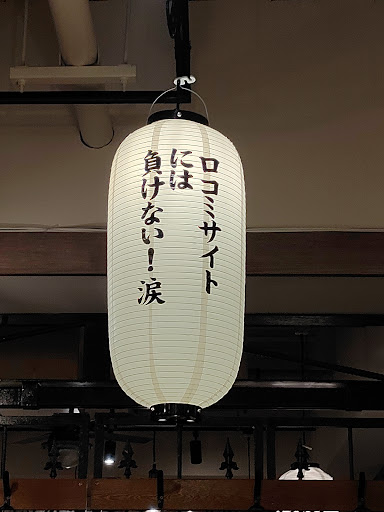 口コミサイト
には
負けない!涙